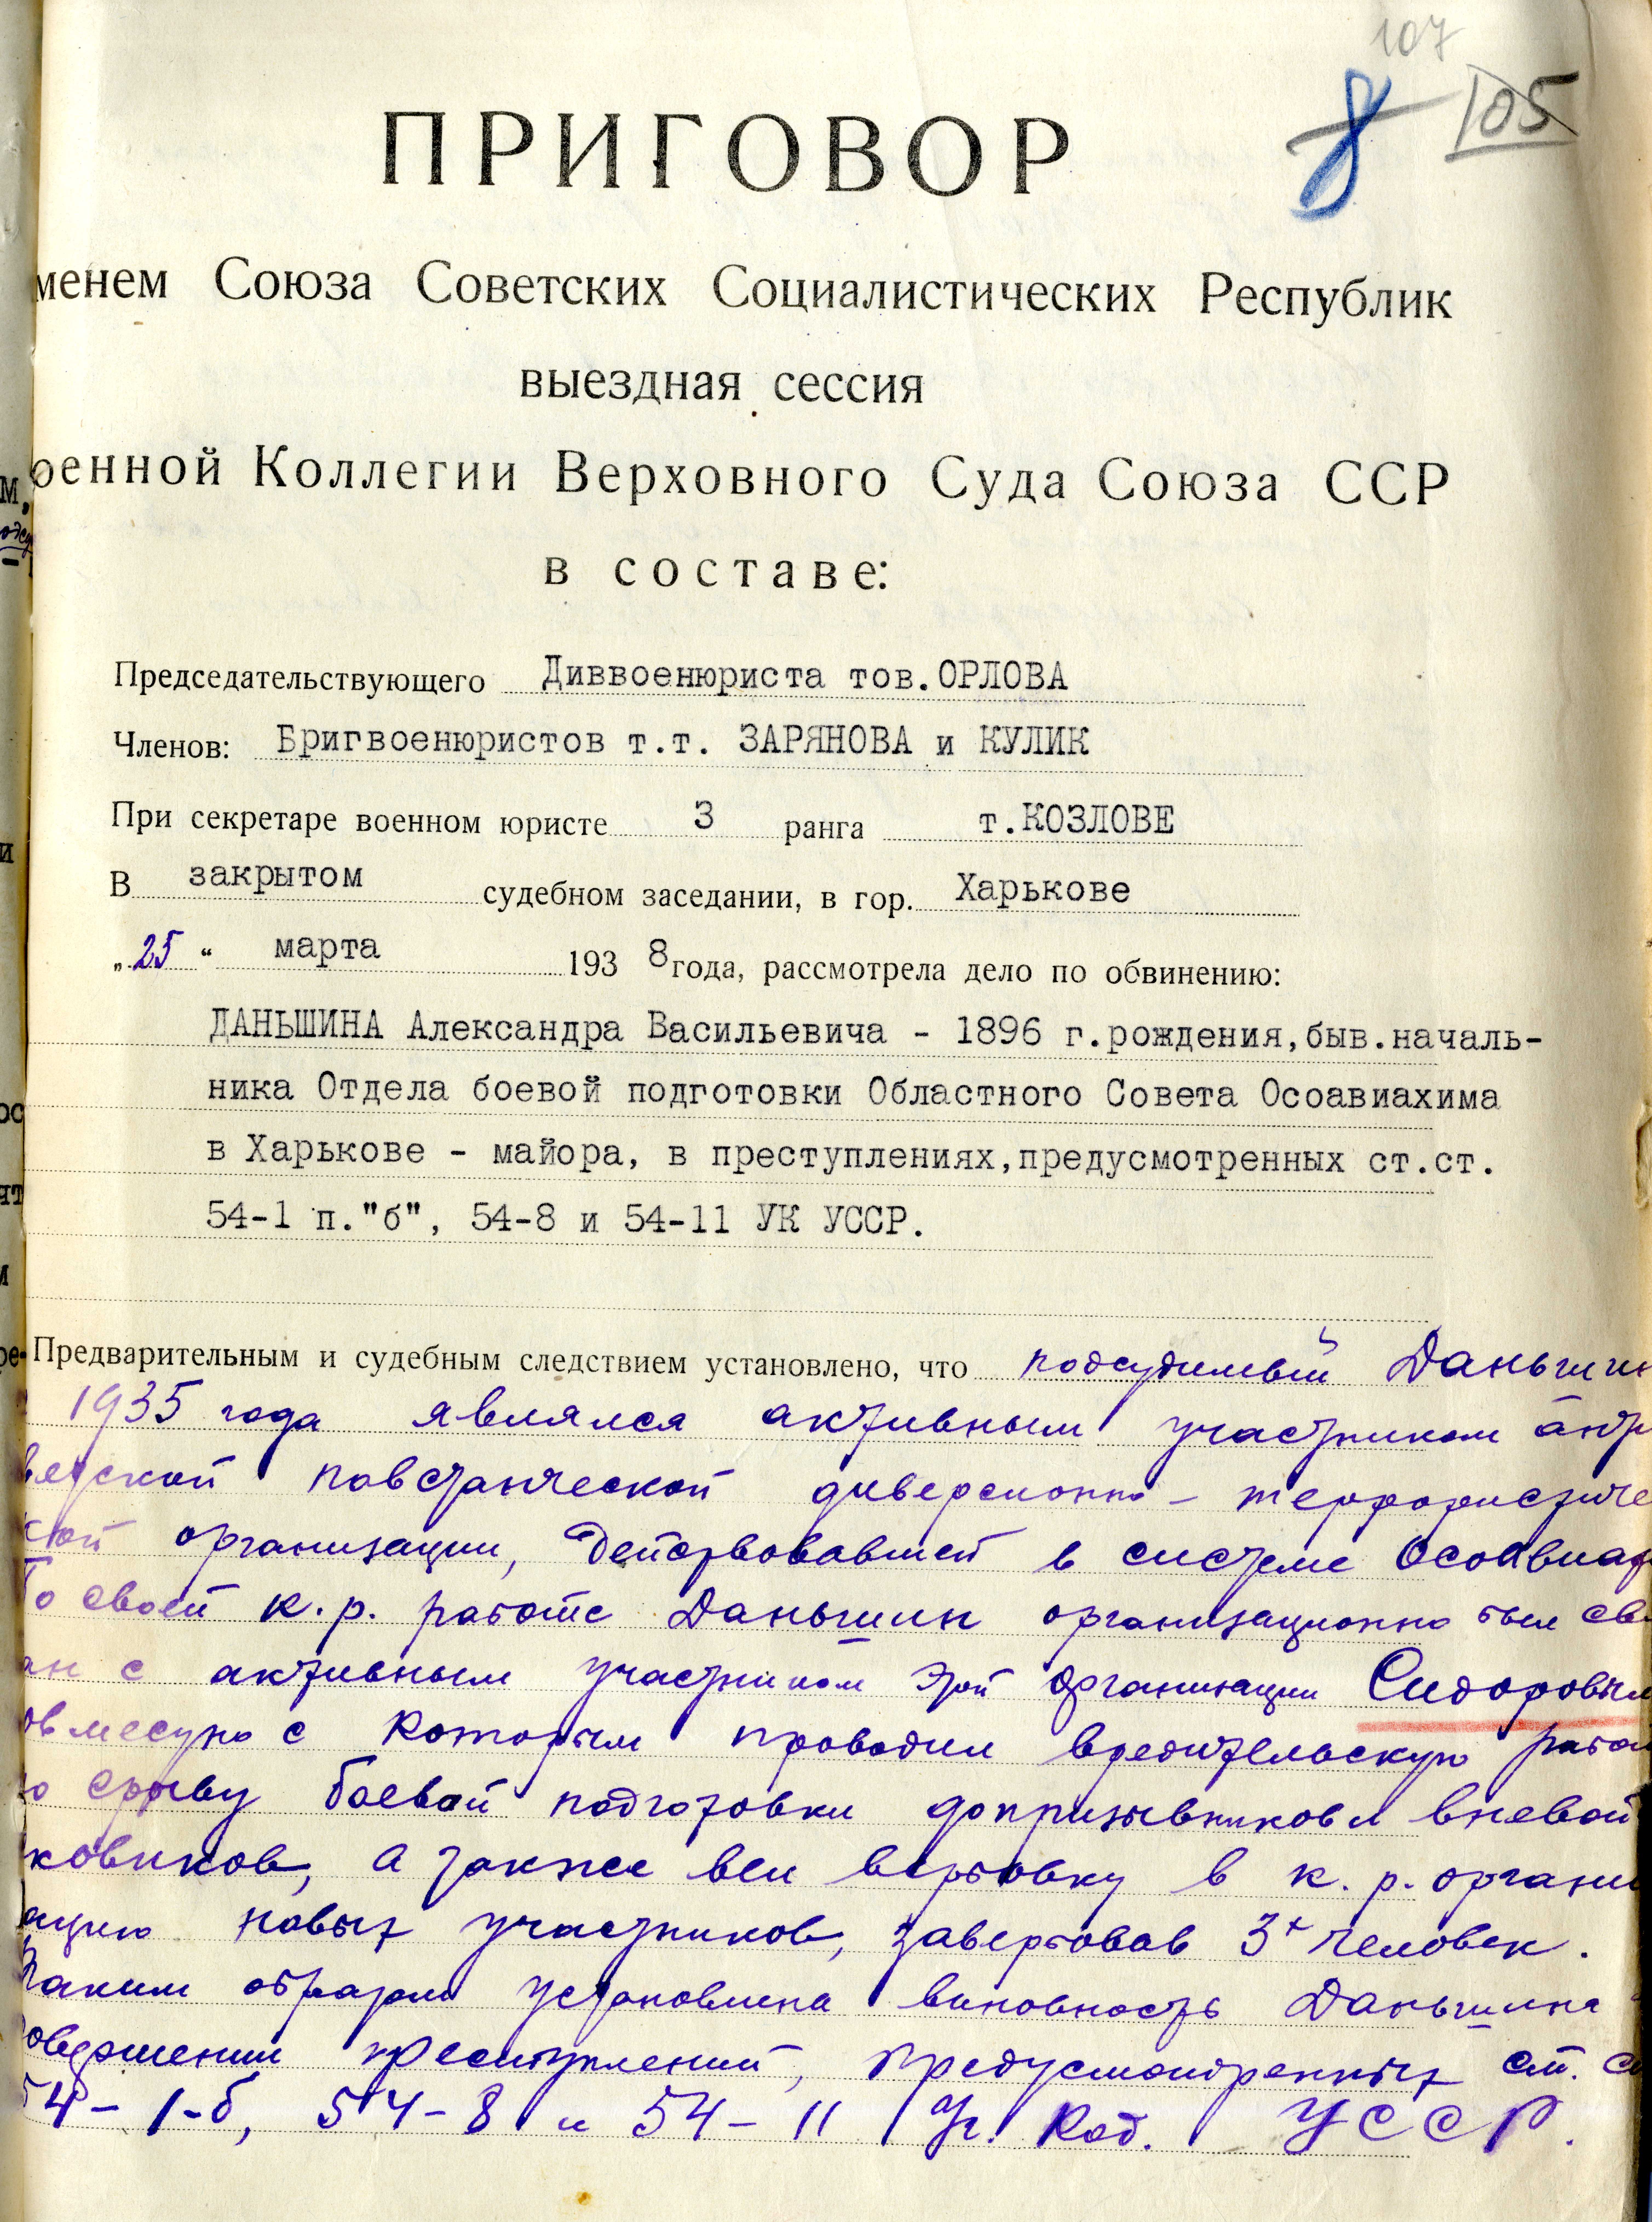 107
8 105
ПРИГОВОР
менем Союза Советских Социалистических Республик
выездная сессия
оенной Коллегии Верховного Суда Союза ССР
в составе:
Председательствующего Диввоенюриста тов.ОРЛОВА
Членов: Бригвоенюристов т.т. ЗАРЯНОВА и КУЛИК
При секретаре военном юристе 3 ранга т.КОЗЛОВЕ
В закрытом судебном заседании, в гор. Харькове
„25“ марта 1938 года, рассмотрела дело по обвинению:
ДАНЬШИНА Александра Васильевича - 1896 г.рождения,быв.началь-
ника Отдела боевой подготовки Областного Совета Осоавиахима
в Харькове - майора, в преступлениях,предусмотренных ст.ст.
54-1 п."б", 54-8 и 54-11 УК УССР.
Предварительным и судебным следствием установлено, что подсудимый Даньшин
1935 года являлся активным участником анти
ветской повстанческой диверсионно-террористиче
ской организации, действовавшей в системе Осоавиах
По своей к.р. работе Даньшин организационно был свя
ан с активным участником этой организации Сидоровым
овместно с которым проводил вредительскую работ
по срыву боевой подготовки допризывников и вневой
сковиков, а также вел вербовку в к.р. органи
ацию новых участников, завербовав 3х человек.
Таким образом установлена виновность Даньшина
совершении преступлений, предусмотренных ст. ст
54-1-б, 54-8 и 54-11 Уг. Код. УССР.